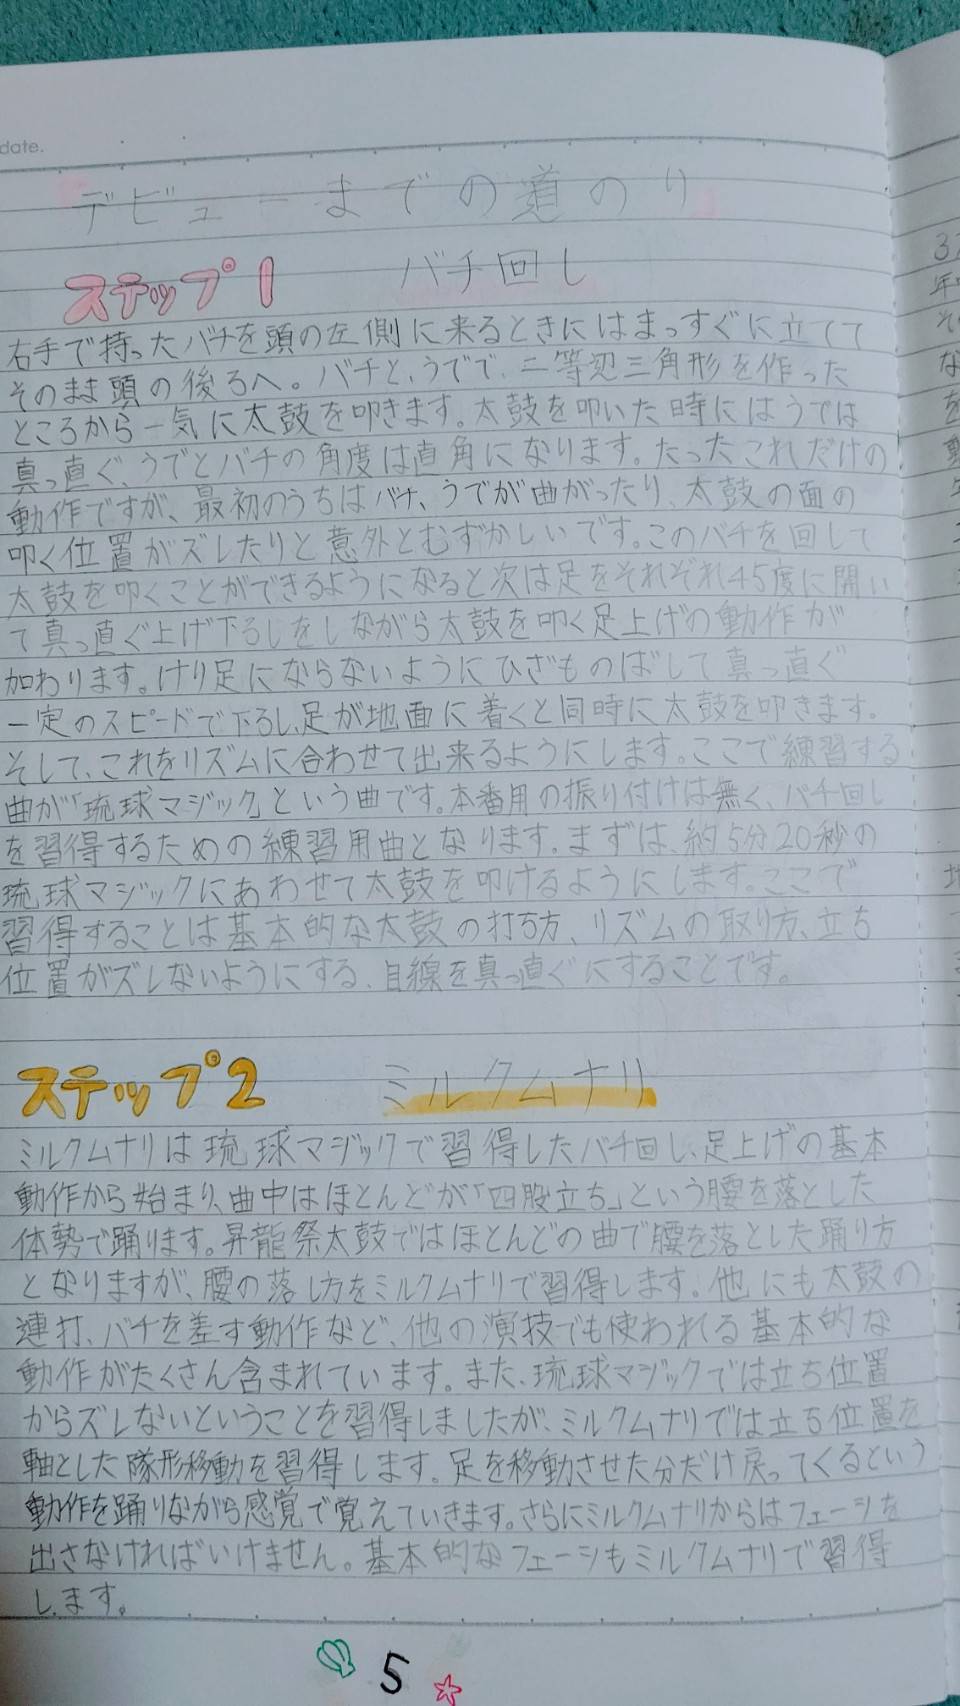 date.
デビューまでの道のり
ステップ1 バチ回し
右手で持ったバチを頭の左側に来るときにはまっすぐに立てて
そのまま頭の後ろへ。バチと、うでで、二等辺三角形を作った
ところから一気に太鼓を叩きます。太鼓を叩いた時にはうでは
真っ直ぐ、うでとバチの角度は直角になります。たったこれだけの
動作ですが、最初のうちはバチ、うでが曲がったり、太鼓の面の
叩く位置がズレたりと意外とむずかしいです。このバチを回して
太鼓を叩くことができるようになると次は足をそれぞれ45度に開い
て真っ直ぐ上げ下ろしをしながら太鼓を叩く足上げの動作が
加わります。けり足にならないようにひざものばして真っ直ぐ
一定のスピードで下ろし、足が地面に着くと同時に太鼓を叩きます。
そして、これをリズムに合わせて出来るようにします。ここで練習する
曲が「琉球マジック」という曲です。本番用の振り付けは無く、バチ回し
を習得するための練習用曲となります。まずは、約5分20秒の
琉球マジックにあわせて太鼓を叩けるようにします。ここで
習得することは基本的な太鼓の打ち方、リズムの取り方、立ち
位置がズレないようにする、目線を真っ直ぐにすることです。
ステップ2 ミルクムナリ
ミルクムナリは琉球マジックで習得したバチ回し、足上げの基本
動作から始まり、曲中はほとんどが「四股立ち」という腰を落とした
体勢で踊ります。昇龍祭太鼓ではほとんどの曲で腰を落とした踊り方
となりますが、腰の落し方をミルクムナリで習得します。他にも太鼓の
連打、バチを差す動作など、他の演技でも使われる基本的な
動作がたくさん含まれています。また、琉球マジックでは立ち位置
からズレないということを習得しましたが、ミルクムナリでは立ち位置を
軸とした隊形移動を習得します。足を移動させた分だけ戻ってくるという
動作を踊りながら感覚で覚えていきます。さらにミルクムナリからはフェーシを
出さなければいけません。基本的なフェーシもミルクムナリで習得
します。
5